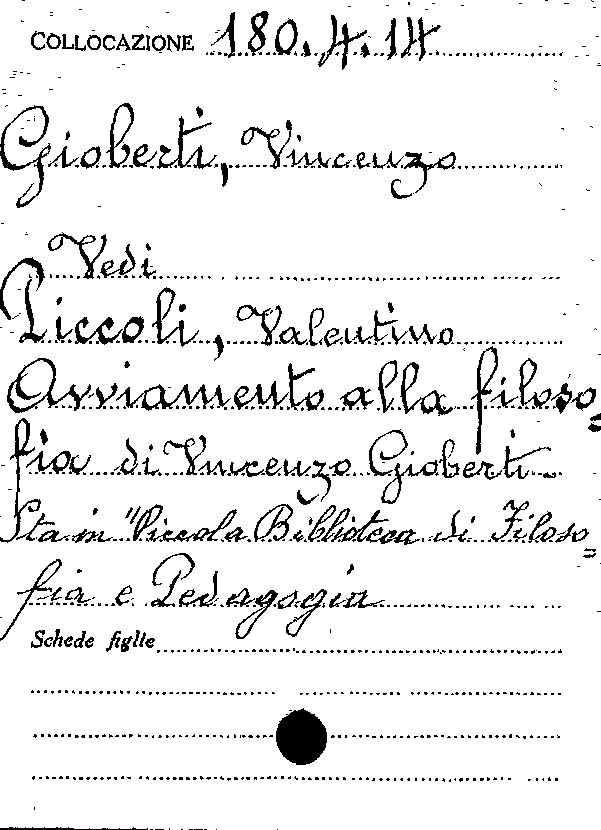 COLLOCAZIONE 180.4.14
Gioberti, Vincenzo
Vedi
Piccoli, Valentino
Avviamento alla filoso=
fia di Vincenzo Gioberti.
Sta in "Piccola Biblioteca di Filoso=
fia e Pedagogia
Schede figlie